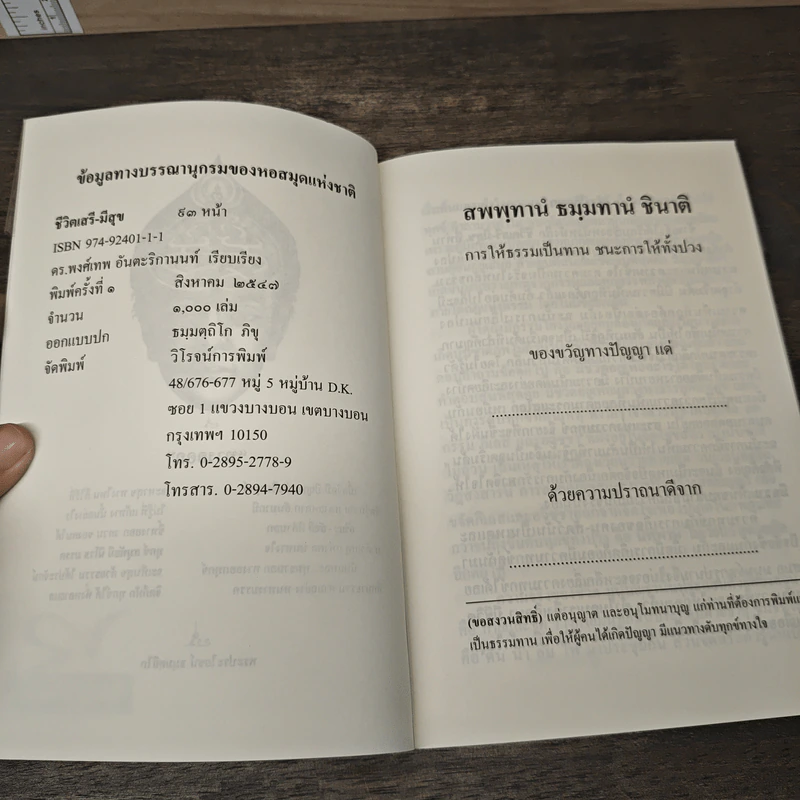 ข้อมูลทางบรรณานุกรมของหอสมุดแห่งชาติ
ชีวิตเสรี-มีสุข ๙๓ หน้า
ISBN 974-92401-1-1
ดร.พงศ์เทพ อันตะริกานนท์ เรียบเรียง
พิมพ์ครั้งที่ ๑ สิงหาคม ๒๕๔๗
จำนวน ๑,๐๐๐ เล่ม
ออกแบบปก ธมฺมตฺถิโก ภิขุ
จัดพิมพ์ วิโรจน์การพิมพ์
48/676-677 หมู่ 5 หมู่บ้าน D.K.
ซอย 1 แขวงบางบอน เขตบางบอน
กรุงเทพฯ 10150
โทร. 0-2895-2778-9
โทรสาร. 0-2894-7940
สพพฺทานํ ธมฺมทานํ ชินาติ
การให้ธรรมเป็นทาน ชนะการให้ทั้งปวง
ของขวัญทางปัญญา แด่
ด้วยความปราถนาดีจาก
(ขอสงวนสิทธิ์) แต่อนุญาต และอนุโมทนาบุญ แก่ท่านที่ต้องการพิมพ์แ
เป็นธรรมทาน เพื่อให้ผู้คนได้เกิดปัญญา มีแนวทางดับทุกข์ทางใจ